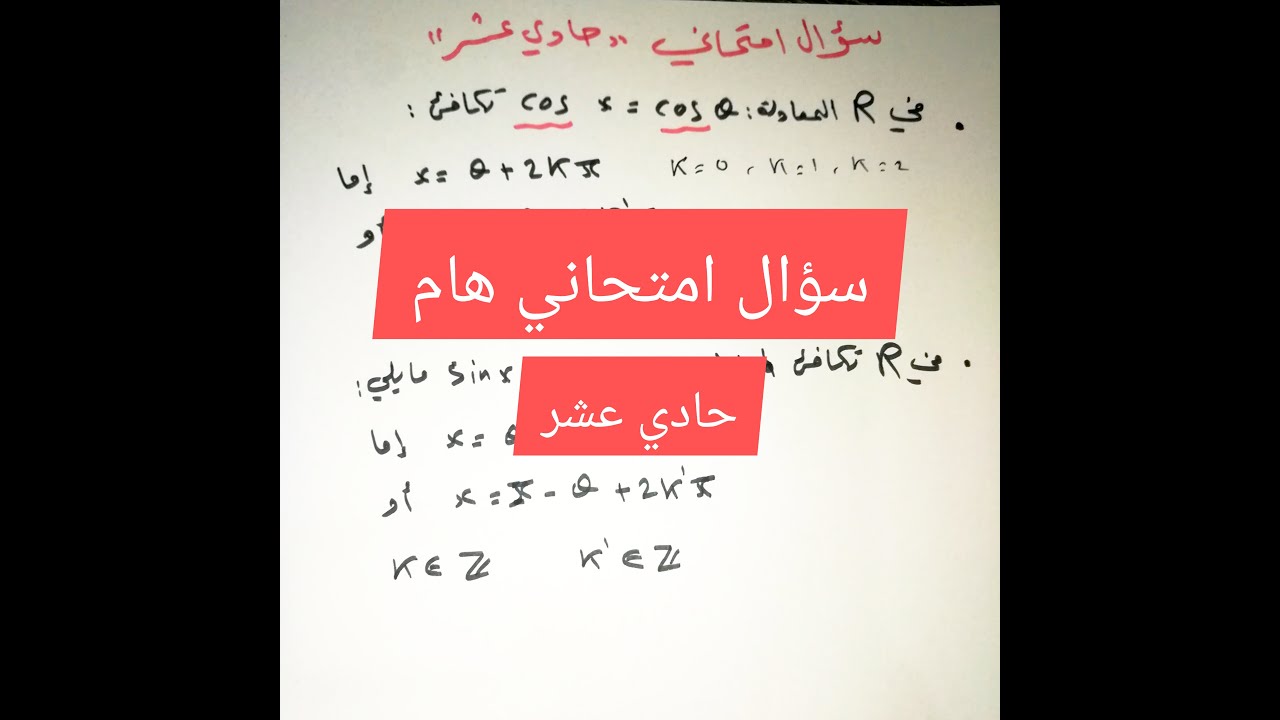 سؤال امتحاني "حادي عشر"
• في R المعادلة: cos x = cos θ تكافئ :
إما x = θ + 2Kπ K=0 , K=1 , K=2
أو
سؤال امتحاني هام
• في R تكافئ sin x مايلي:
حادي عشر
إما x =
أو x = π - θ + 2K'π
K ∈ ℤ K' ∈ ℤ